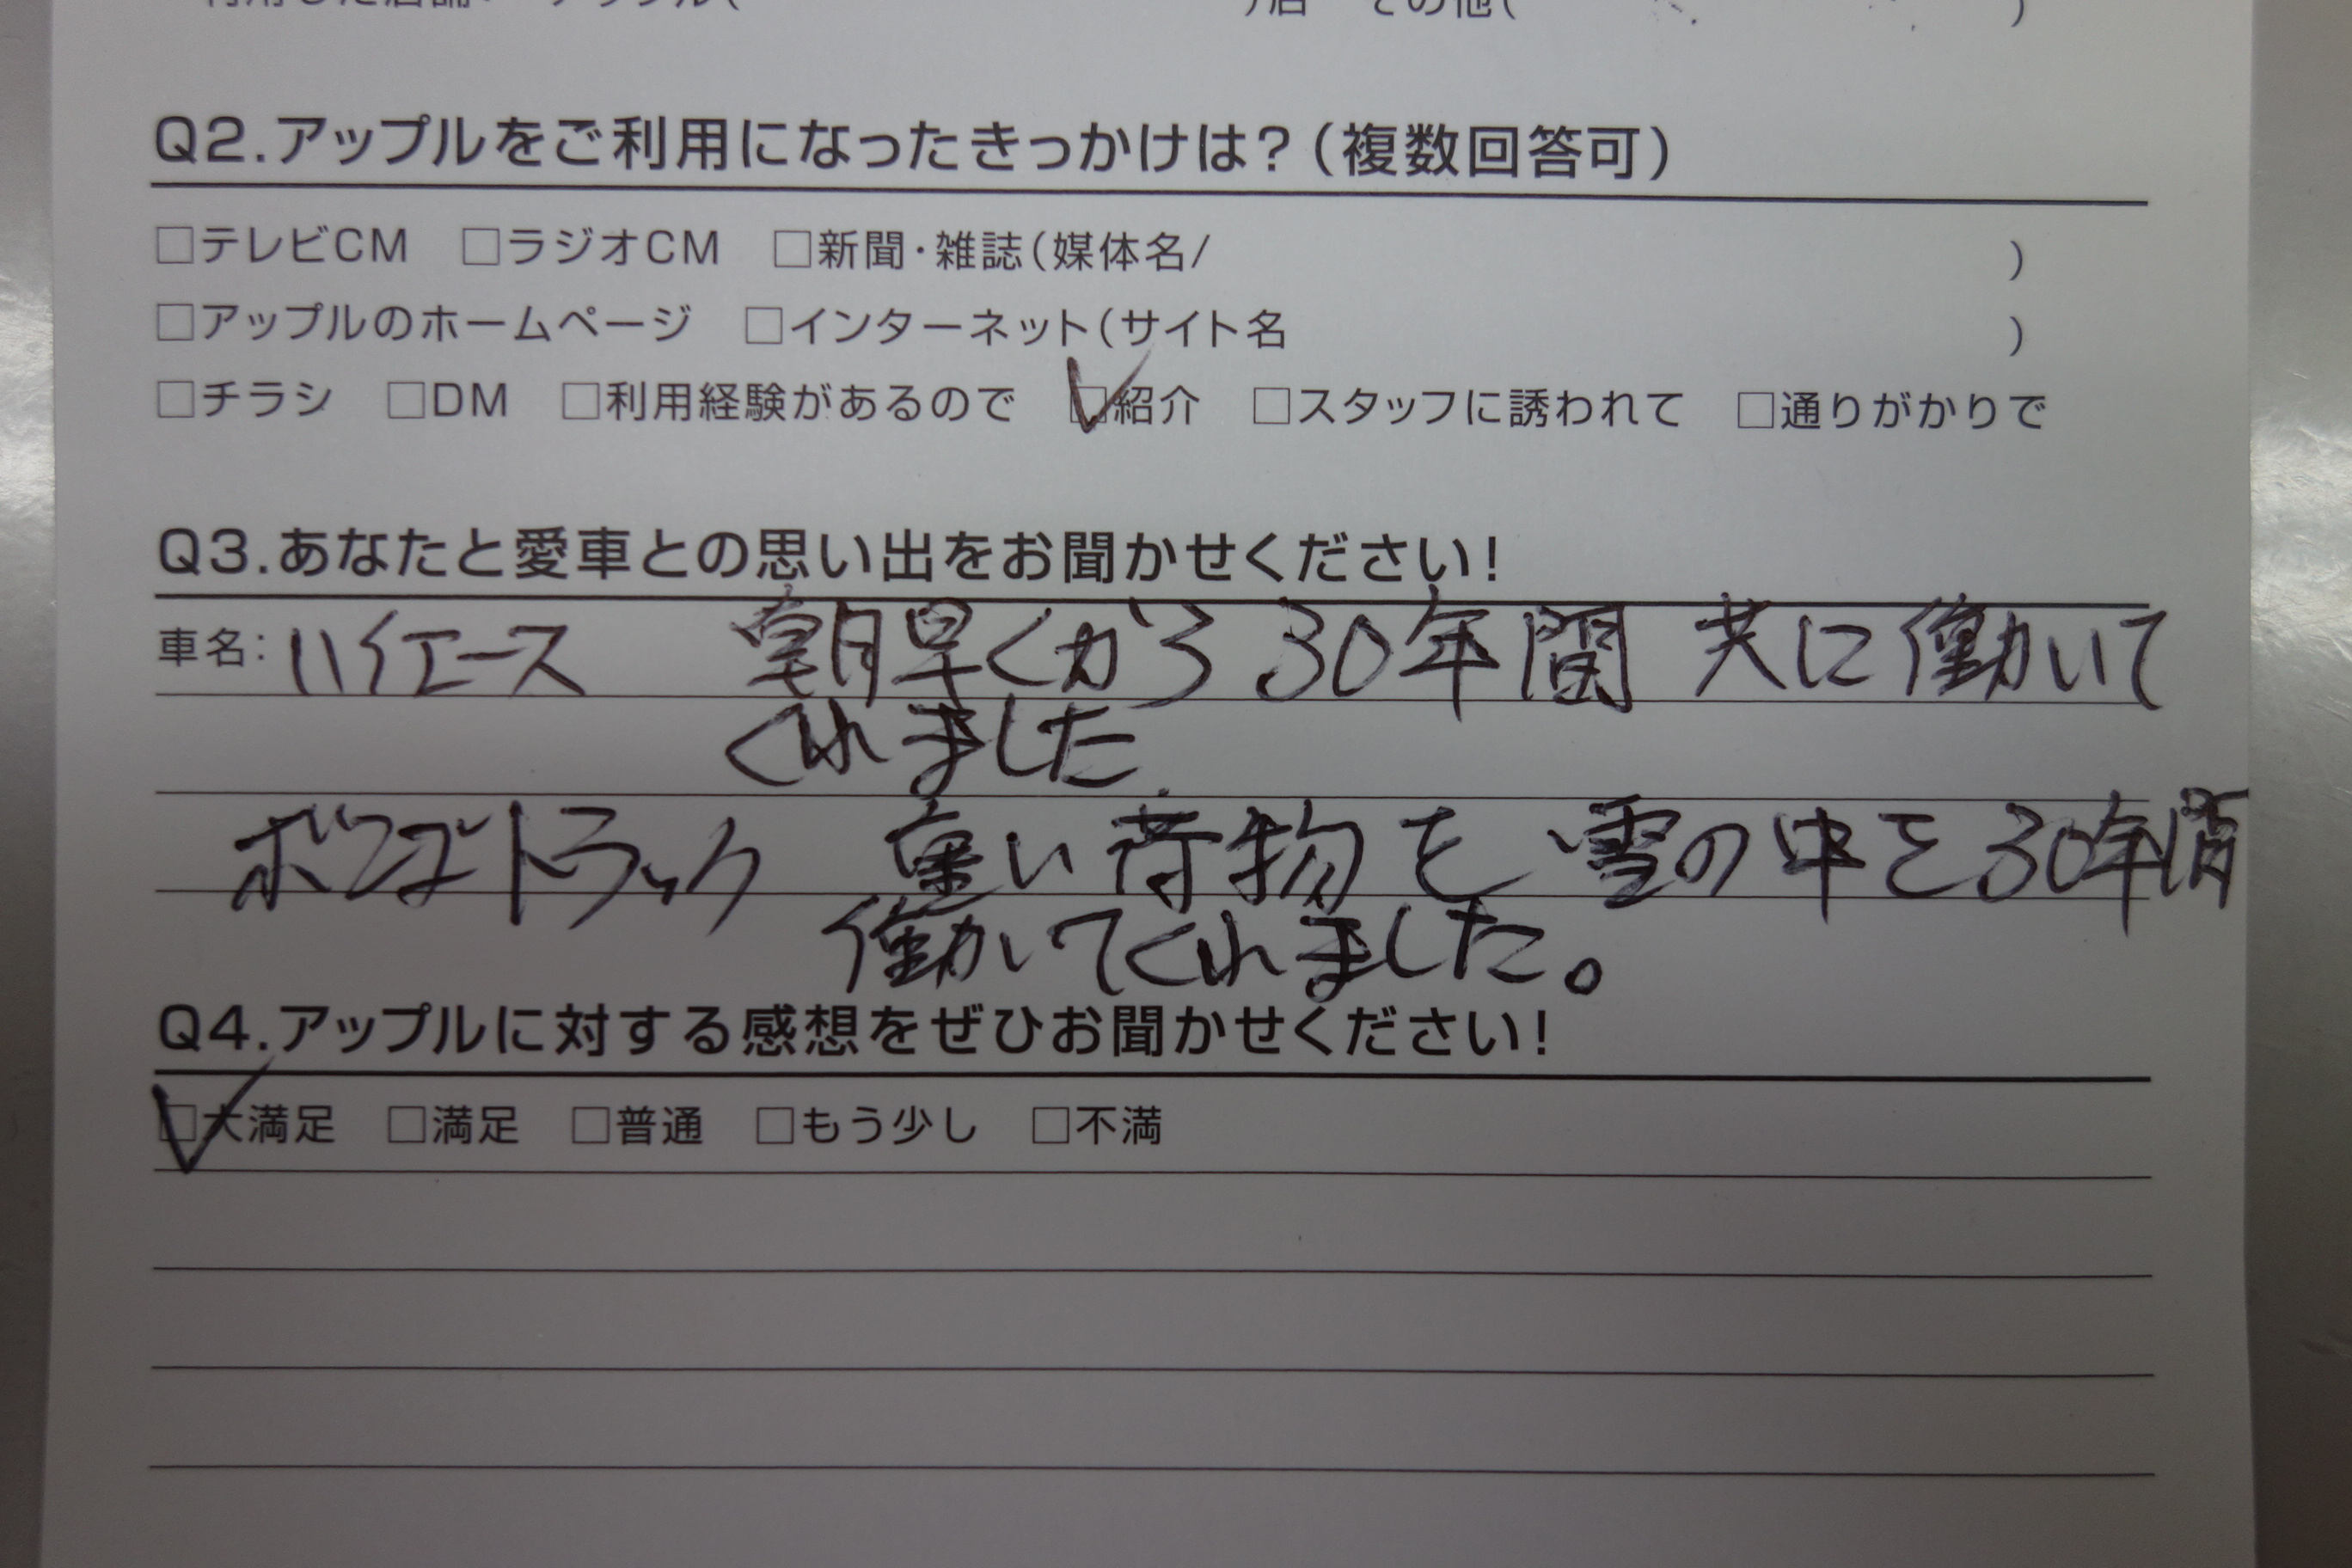 利用した店舗: アップル( )店 その他( )
Q2.アップルをご利用になったきっかけは?(複数回答可)
□テレビCM □ラジオCM □新聞・雑誌(媒体名/ )
□アップルのホームページ □インターネット(サイト名 )
□チラシ □DM □利用経験があるので ☑紹介 □スタッフに誘われて □通りがかりで
Q3.あなたと愛車との思い出をお聞かせください!
車名: ハイエース 朝早くから 30年間 共に働いて
くれました.
ボンゴトラック 重い荷物を 雪の中を30年間
働いてくれました。
Q4.アップルに対する感想をぜひお聞かせください!
☑大満足 □満足 □普通 □もう少し □不満